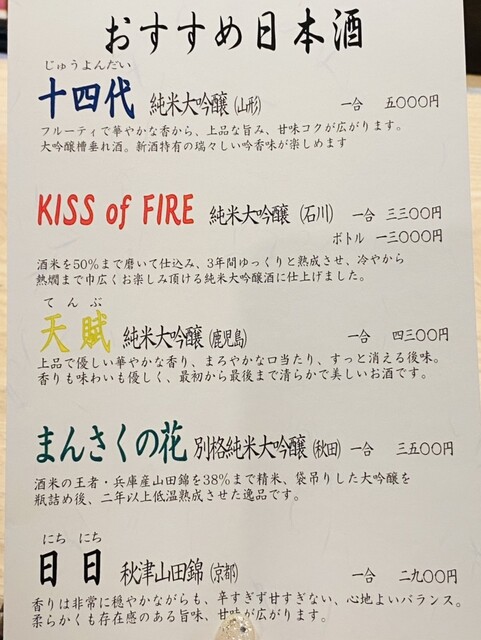 おすすめ日本酒
じゅうよんだい
十四代 純米大吟醸(山形) 一合 五〇〇〇円
フルーティで華やかな香から、上品な旨み、甘味コクが広がります。
大吟醸槽垂れ酒。新酒特有の瑞々しい吟香味が楽しめます
KISS of FIRE 純米大吟醸(石川) 一合 三三〇〇円
ボトル 一三〇〇〇円
酒米を50%まで磨いて仕込み、3年間ゆっくりと熟成させ、冷やから
熱燗まで巾広くお楽しみ頂ける純米大吟醸酒に仕上げました。
てんぶ
天賦 純米大吟醸(鹿児島) 一合 四三〇〇円
上品で優しい華やかな香り、まろやかな口当たり、すっと消える後味。
香りも味わいも優しく、最初から最後まで清らかで美しいお酒です。
まんさくの花 別格純米大吟醸(秋田) 一合 三五〇〇円
酒米の王者・兵庫産山田錦を38%まで精米、袋吊りした大吟醸を
瓶詰め後、二年以上低温熟成させた逸品です。
にち にち
日日 秋津山田錦(京都) 一合 二九〇〇円
香りは非常に穏やかながらも、辛すぎず甘すぎない、心地よいバランス。
柔らかくも存在感のある旨味、甘味が広がります。